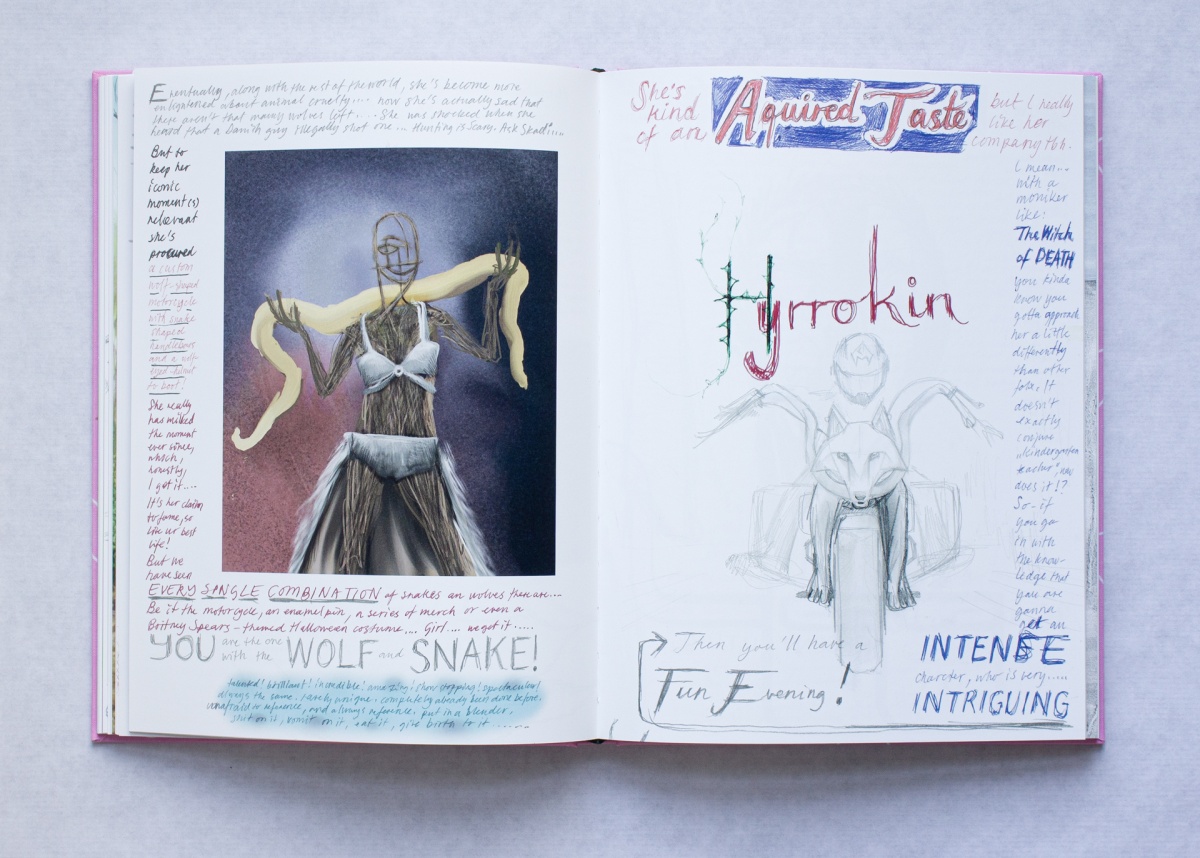 Eventually, along with the rest of the world, she's become more
enlightened about animal cruelty.... now she's actually sad that
there aren't that many wolves left... She was shocked when she
heard that a Danish guy illegally shot one... Hunting is Scary. Ask Skadi.....
But to
keep her
iconic
moment(s)
relevant
she's
procured
a custom
wolf-shaped
motorcycle
with snake
shaped
handlebars
and a
to boot!
She really
has milked
the moment
ever since,
which,
honestly,
I get it....
It's her claim
to fame, so
live ur best
life!
But we
have seen
EVERY SINGLE COMBINATION of snakes an wolves there are...
Be it the motorcycle, an enamel pin, a series of merch or even a
Britney Spears-themed Halloween costume.... Girl.... we get it.....
YOU are the one
with the WOLF and SNAKE!
talented! brilliant! incredible! amazing! show stopping! spectacular!
always the same, rarely unique, completely already been done before,
unafraid to reference, and always reference. put in a blender,
shit on it, vomit on it, eat it, give birth to it.......
She's
kind
of an
Aquired Taste
but I really
like her
company tbh.
I mean...
with a
moniker
like:
The Witch
of DEATH
you kinda
know you
gotta approach
her a little
differently
than other
folx. It
doesn't
exactly
conjure
"kindergarten
teacher", now
does it!?
So - if
you go
in with
the know-
ledge that
you are
gonna
get an
INTENSE
charcter, who is very.....
INTRIGUING
Hyrrokin
Then you'll have a
Fun Evening!